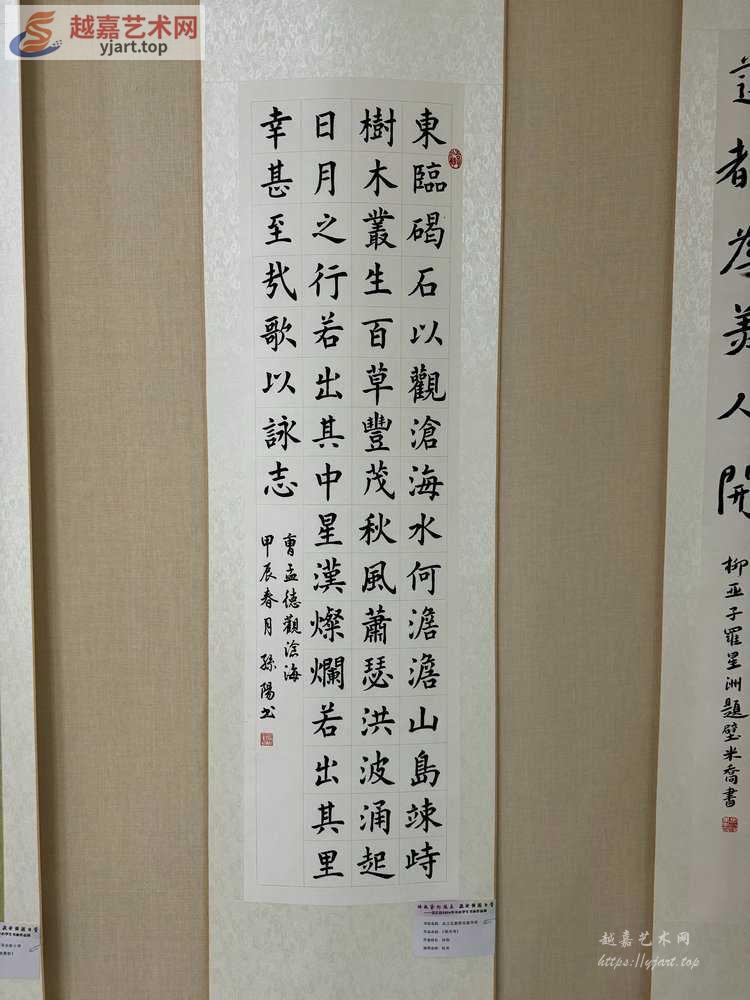 越嘉艺术网
yjart.top
蓮都為美人開
柳亚子羅星洲題壁米喬書
東臨碣石以觀滄海水何澹澹山島竦峙
樹木叢生百草豐茂秋風蕭瑟洪波涌起
日月之行若出其中星漢燦爛若出其里
幸甚至哉歌以詠志
曹孟德觀滄海
甲辰春月孫陽书
越嘉艺术网
https://yjart.top